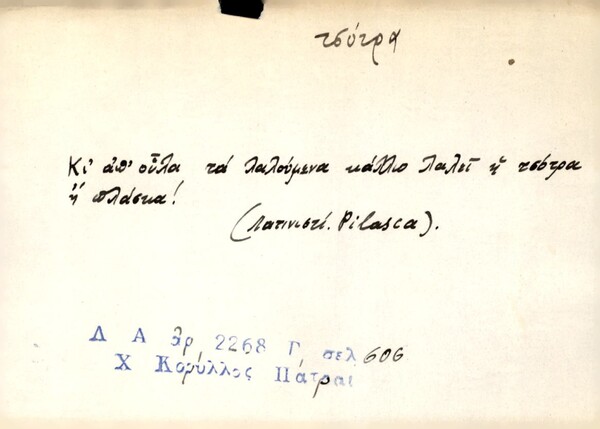 τσότρα
Κι' ἀπ' οὗλα τά λαλούμενα κάλλιο λαλεῖ ἡ τσότρα
ἡ πλάσκα!
(Λατινιστί. Pilasca).
Λ Α ἀρ 2268 Γ, σελ 606
Χ Κορύλλος Πάτραι